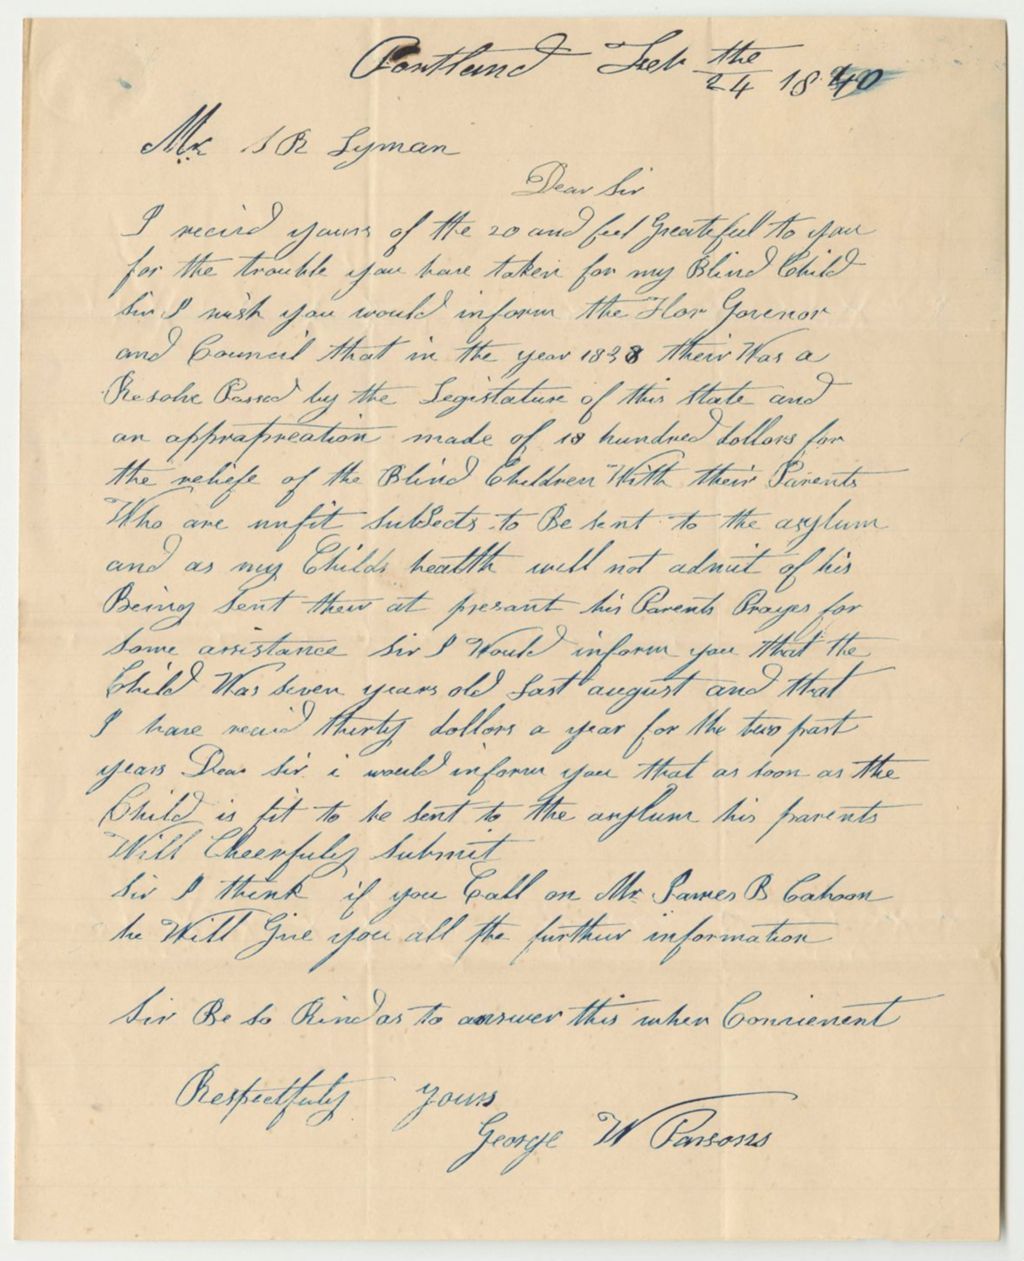 Portland Feb the 24 1840
Mr S R Lyman
Dear Sir
I recivd yours of the 20 and feel Greatefull to you
for the trouble you have taken for my Blind Child
Sir I wish you would inform the Hon Govenor
and Council that in the year 1838 their Was a
Resolve Passed by the Legistature of this State and
an apprapreation made of 10 hundred dollars for
the reliefe of the Blind Children With their Parents
Who are unfit subSects to Be sent to the asylum
and as my Childs health will not admit of his
Being Sent their at presant his Parents Prayes for
Some assistance Sir I Would inform you that the
Child Was Seven years old Last august and that
I have recivd thirty dollars a year for the two past
years Dear Sir i would inform you that as soon as the
Child is fit to be sent to the asylum his parents
Will Cheerfuly Submit
Sir I think if you Call on Mr James B Cahoon
he Will Give you all the further information
Sir Be So Kind as to answer this when Convienent
Respectfuly yours
George W Parsons